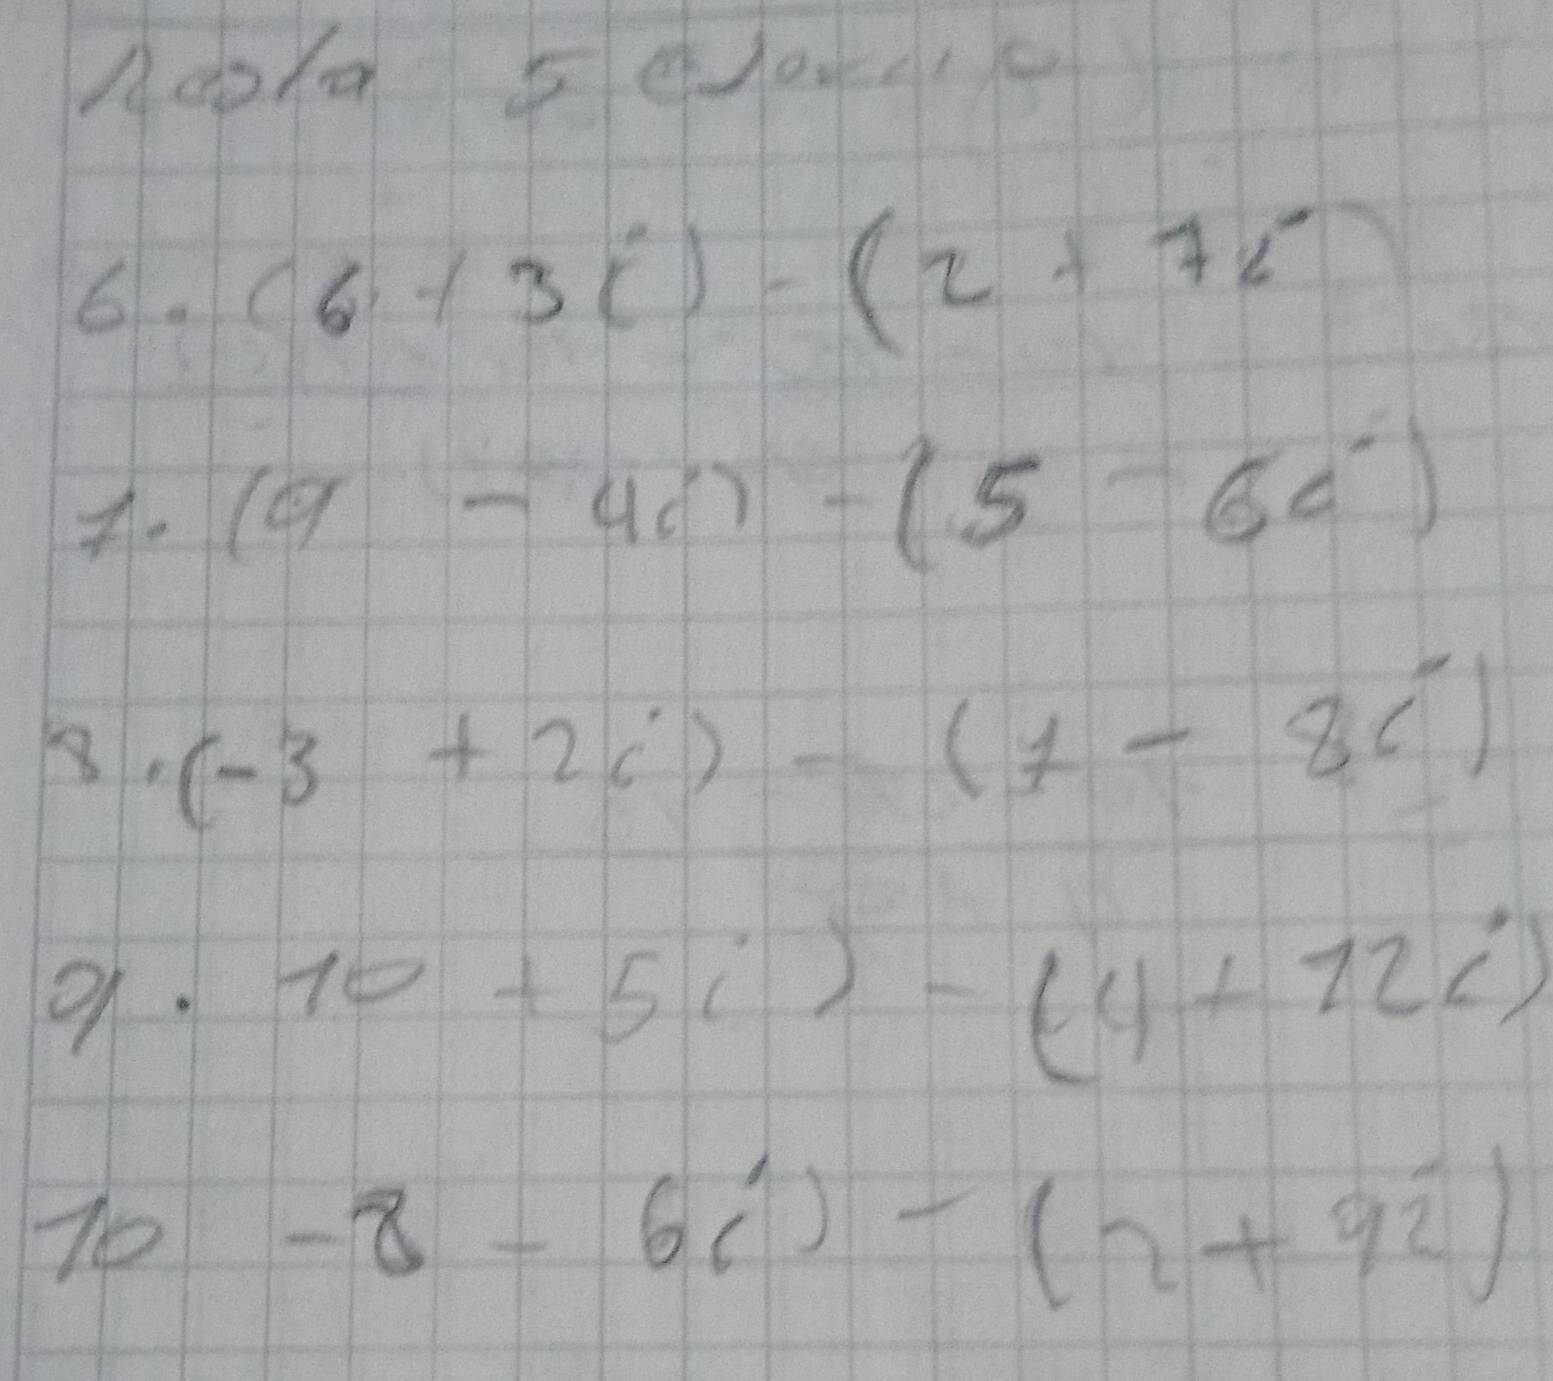 5
6. (6 + 3i) - (2 + 7i)
7. (9 - 4i) - (5 - 6i)
8. (-3 + 2i) - (1 - 8i)
9. 10 + 5i) - (4 + 12i)
10 -8 - 6i) - (2 + 9i)